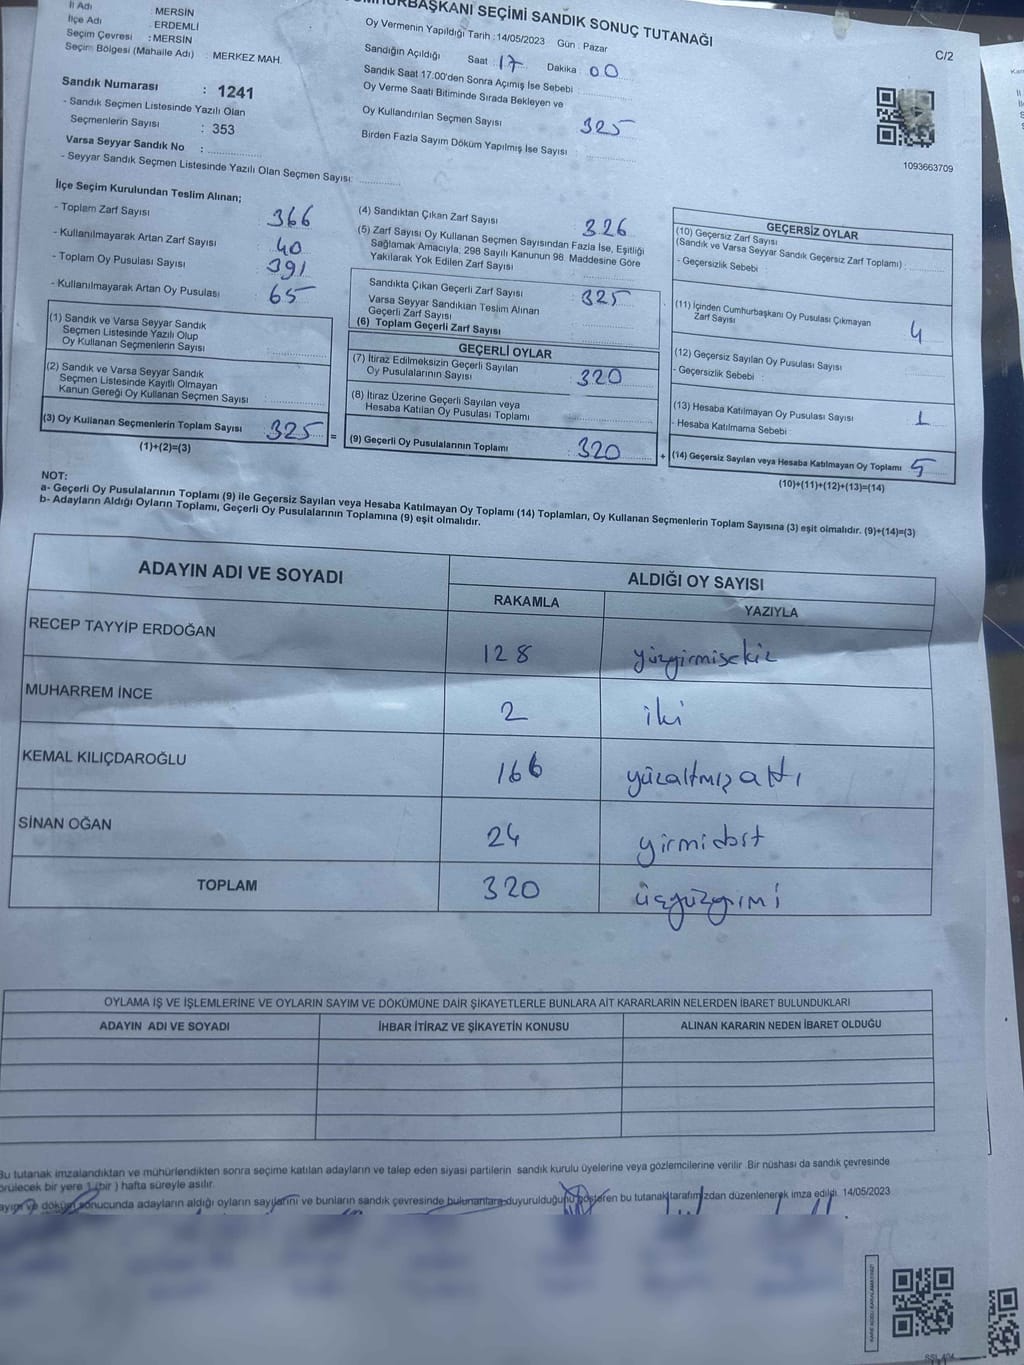 CUMHURBAŞKANI SEÇİMİ SANDIK SONUÇ TUTANAĞI
C/2
İl Adı : MERSİN
İlçe Adı : ERDEMLİ
Seçim Çevresi : MERSİN
Seçim Bölgesi (Mahalle Adı) : MERKEZ MAH.
Oy Vermenin Yapıldığı Tarih :14/05/2023 Gün : Pazar
Sandığın Açıldığı Saat : 17 Dakika : 00
Sandık Saat 17.00'den Sonra Açımış İse Sebebi :
Oy Verme Saati Bitiminde Sırada Bekleyen ve
Oy Kullandırılan Seçmen Sayısı : 325
Birden Fazla Sayım Döküm Yapılmış İse Sayısı :
1093663709
Sandık Numarası : 1241
- Sandık Seçmen Listesinde Yazılı Olan
Seçmenlerin Sayısı : 353
Varsa Seyyar Sandık No :
- Seyyar Sandık Seçmen Listesinde Yazılı Olan Seçmen Sayısı:
İlçe Seçim Kurulundan Teslim Alınan;
- Toplam Zarf Sayısı : 366
- Kullanılmayarak Artan Zarf Sayısı : 40
- Toplam Oy Pusulası Sayısı : 391
- Kullanılmayarak Artan Oy Pusulası : 65
(1) Sandık ve Varsa Seyyar Sandık
Seçmen Listesinde Yazılı Olup
Oy Kullanan Seçmenlerin Sayısı :
(2) Sandık ve Varsa Seyyar Sandık
Seçmen Listesinde Kayıtlı Olmayan
Kanun Gereği Oy Kullanan Seçmen Sayısı :
(3) Oy Kullanan Seçmenlerin Toplam Sayısı : 325
(1)+(2)=(3)
=
(4) Sandıktan Çıkan Zarf Sayısı : 326
(5) Zarf Sayısı Oy Kullanan Seçmen Sayısından Fazla İse, Eşitliği
Sağlamak Amacıyla; 298 Sayılı Kanunun 98. Maddesine Göre
Yakılarak Yok Edilen Zarf Sayısı :
Sandıkta Çıkan Geçerli Zarf Sayısı : 325
Varsa Seyyar Sandıktan Teslim Alınan
Geçerli Zarf Sayısı :
(6) Toplam Geçerli Zarf Sayısı :
GEÇERLİ OYLAR
(7) İtiraz Edilmeksizin Geçerli Sayılan
Oy Pusulalarının Sayısı : 320
(8) İtiraz Üzerine Geçerli Sayılan veya
Hesaba Katılan Oy Pusulası Toplamı :
(9) Geçerli Oy Pusulalarının Toplamı : 320
+
GEÇERSİZ OYLAR
(10) Geçersiz Zarf Sayısı
(Sandık ve Varsa Seyyar Sandık Geçersiz Zarf Toplamı) :
- Geçersizlik Sebebi :
(11) İçinden Cumhurbaşkanı Oy Pusulası Çıkmayan
Zarf Sayısı : 4
(12) Geçersiz Sayılan Oy Pusulası Sayısı :
- Geçersizlik Sebebi :
(13) Hesaba Katılmayan Oy Pusulası Sayısı : 1
- Hesaba Katılmama Sebebi :
(14) Geçersiz Sayılan veya Hesaba Katılmayan Oy Toplamı : 5
(10)+(11)+(12)+(13)=(14)
NOT:
a- Geçerli Oy Pusulalarının Toplamı (9) ile Geçersiz Sayılan veya Hesaba Katılmayan Oy Toplamı (14) Toplamları, Oy Kullanan Seçmenlerin Toplam Sayısına (3) eşit olmalıdır. (9)+(14)=(3)
b- Adayların Aldığı Oyların Toplamı, Geçerli Oy Pusulalarının Toplamına (9) eşit olmalıdır.
ADAYIN ADI VE SOYADI
ALDIĞI OY SAYISI
RAKAMLA YAZIYLA
RECEP TAYYİP ERDOĞAN 128 yüzyirmisekiz
MUHARREM İNCE 2 iki
KEMAL KILIÇDAROĞLU 166 yüzaltmışaltı
SİNAN OĞAN 24 yirmidört
TOPLAM 320 üçyüzyirmi
OYLAMA İŞ VE İŞLEMLERİNE VE OYLARIN SAYIM VE DÖKÜMÜNE DAİR ŞİKAYETLERLE BUNLARA AİT KARARLARIN NELERDEN İBARET BULUNDUKLARI
ADAYIN ADI VE SOYADI İHBAR İTİRAZ VE ŞİKAYETİN KONUSU ALINAN KARARIN NEDEN İBARET OLDUĞU
Bu tutanak imzalandıktan ve mühürlendikten sonra seçime katılan adayların ve talep eden siyasi partilerin sandık kurulu üyelerine veya gözlemcilerine verilir. Bir nüshası da sandık çevresinde
görülecek bir yere 1 (bir ) hafta süreyle asılır.
Sayım ve döküm sonucunda adayların aldığı oyların sayılarını ve bunların sandık çevresinde bulunanlara duyurulduğunu gösteren bu tutanak tarafımızdan düzenlenerek imza edildi. 14/05/2023